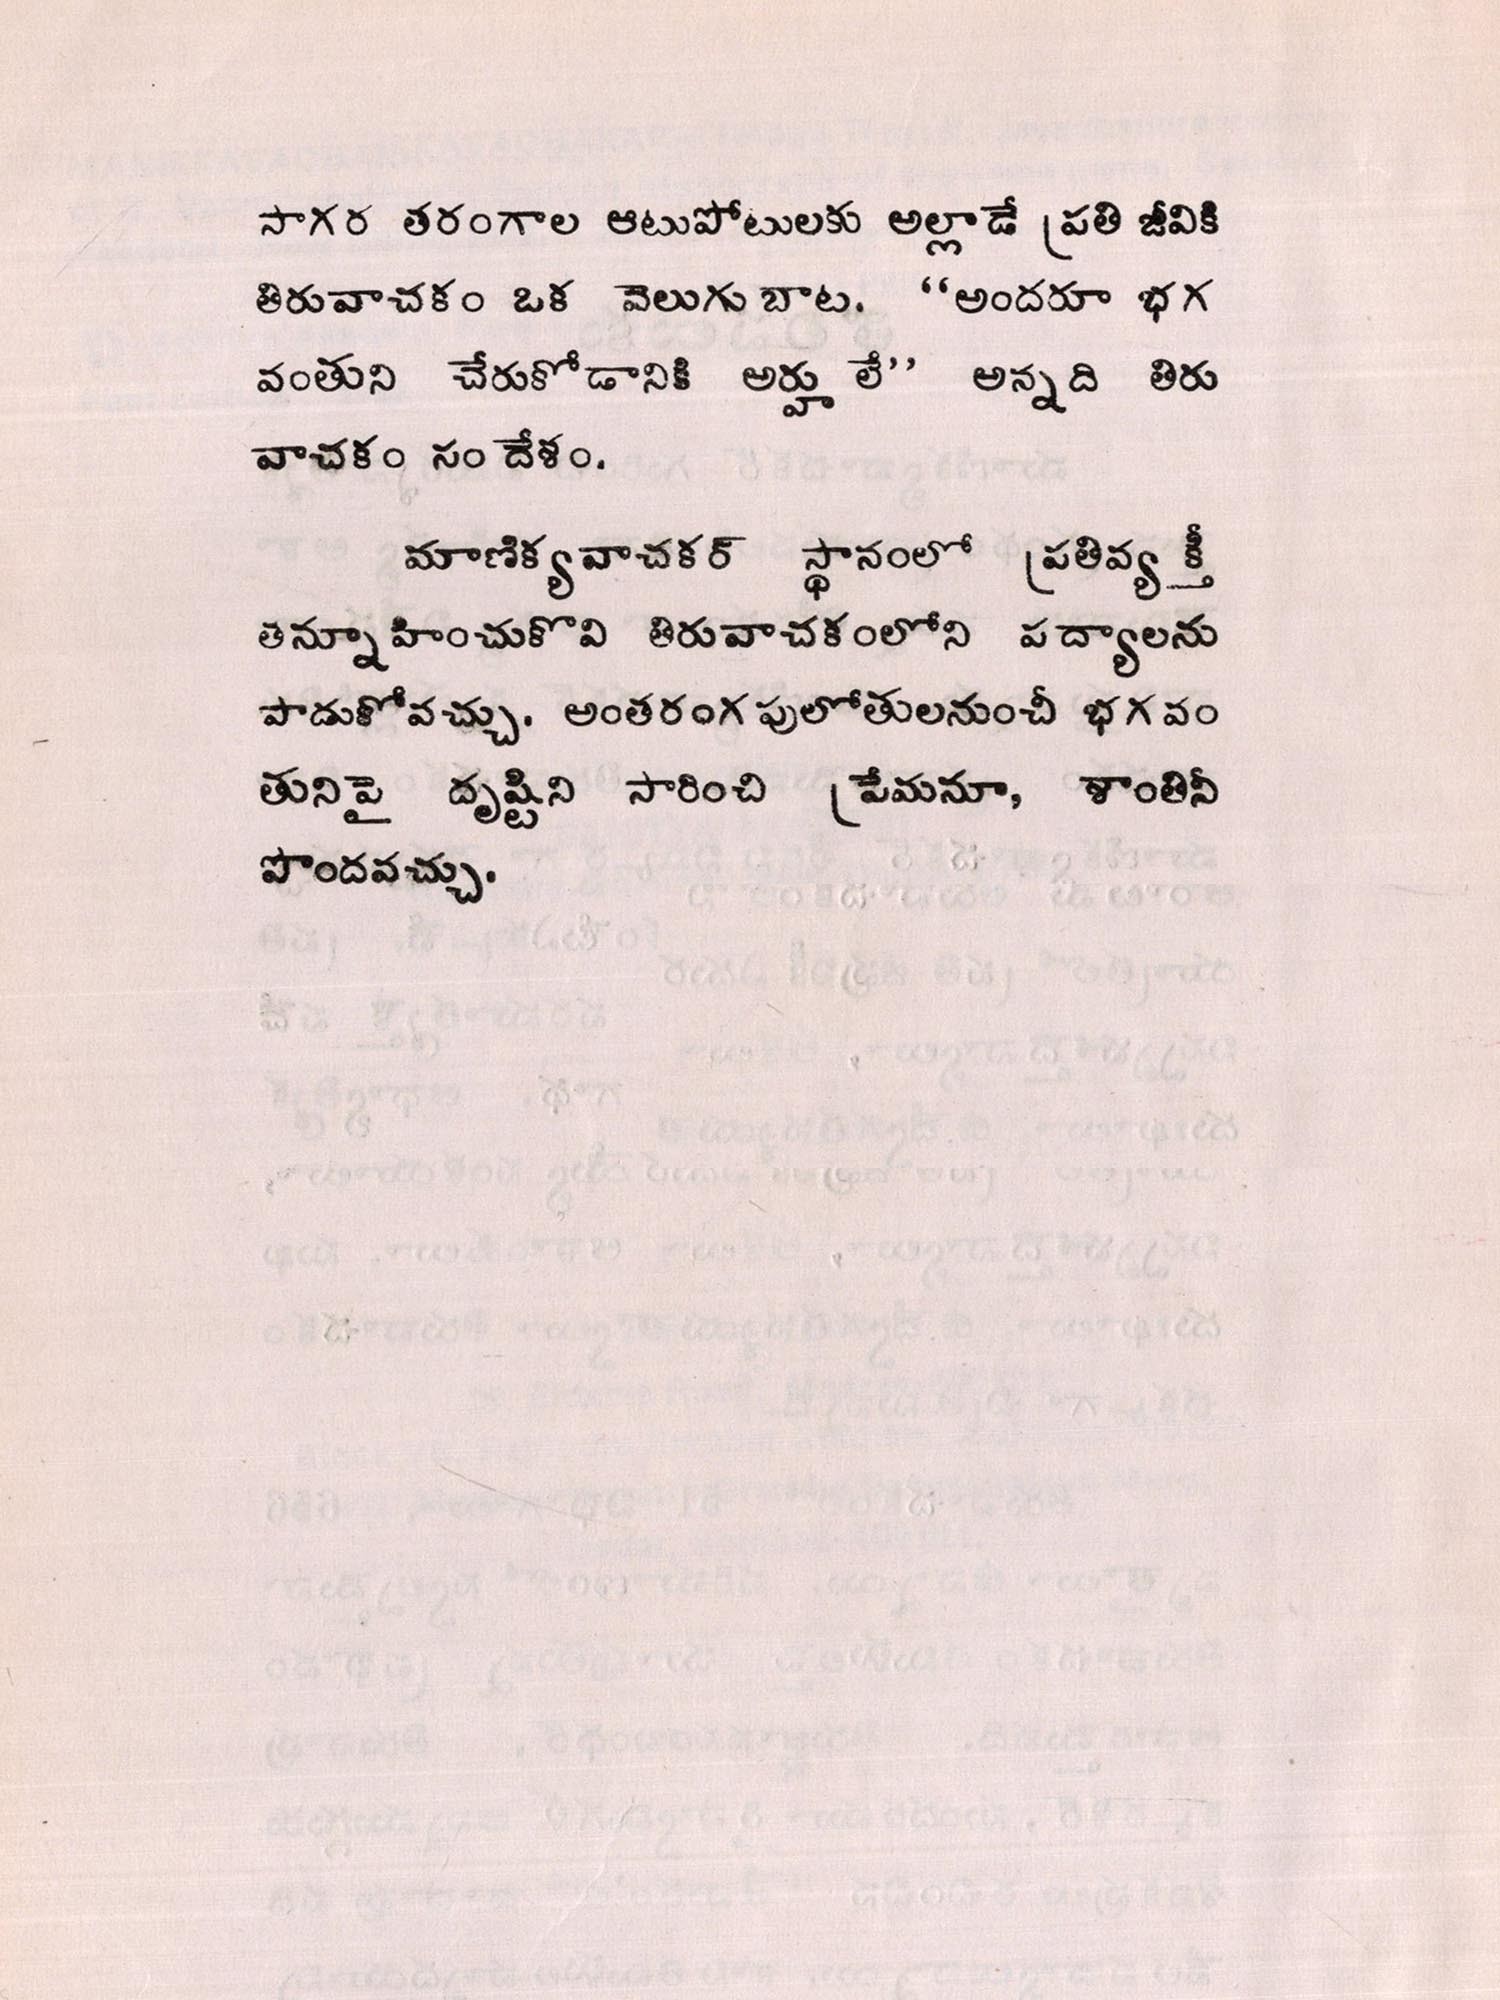 సాగర తరంగాల ఆటుపోటులకు అల్లాడే ప్రతి జీవికి
తిరువాచకం ఒక వెలుగు బాట. “అందరూ భగ
వంతుని చేరుకోడానికి అర్హులే” అన్నది తిరు
వాచకం సందేశం.
మాణిక్యవాచకర్ స్థానంలో ప్రతివ్యక్తీ
తన్నూహించుకొని తిరువాచకంలోని పద్యాలను
పాడుకోవచ్చు. అంతరంగపులోతులనుంచీ భగవం
తునిపై దృష్టిని సారించి ప్రేమనూ, శాంతినీ
పొందవచ్చు.